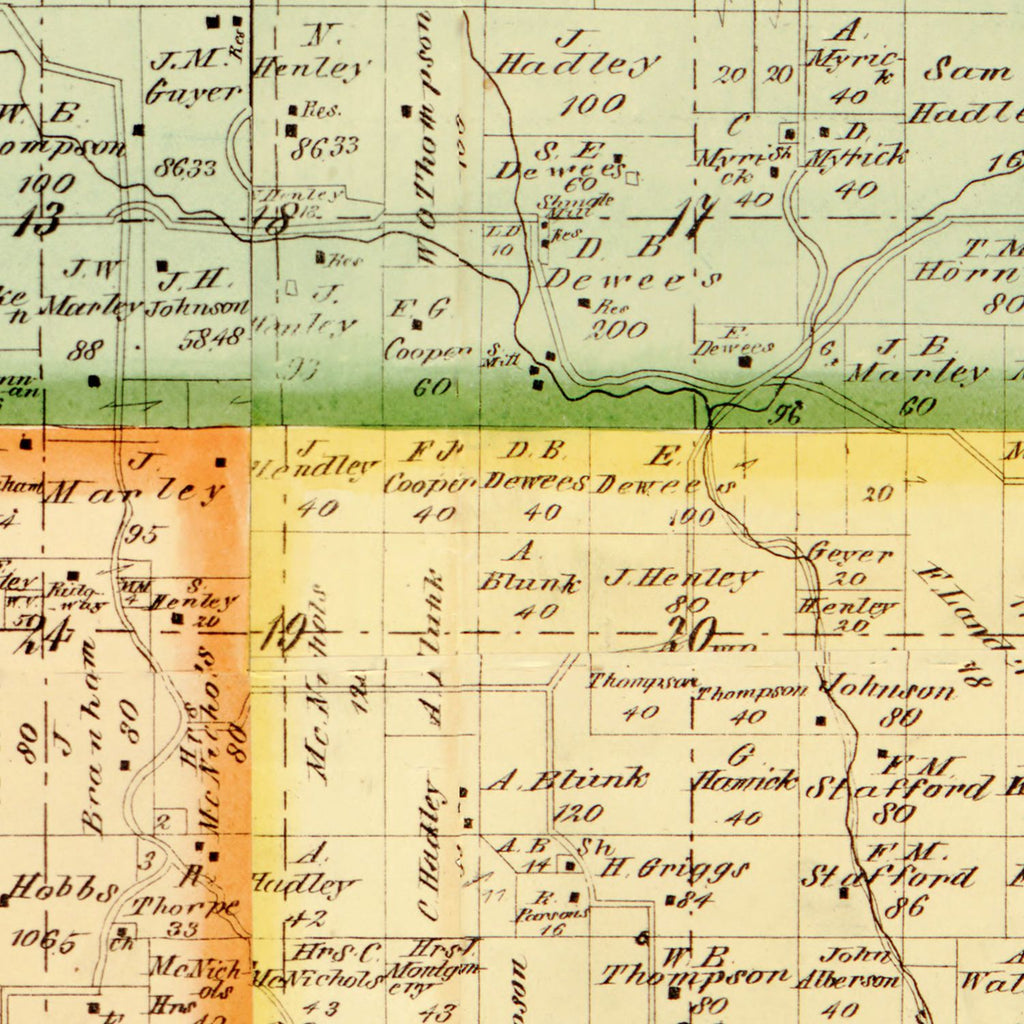 J.M.
Guyer
Res
8633
N.
Henley
Res.
8633
W O Thompson
J
Hadley
100
20
20
A.
Myric-
k
40
Sam
Hadle
16
W. B
ompson
100
C
Myri
ck
40
Sh
D.
Myrick
40
S. E
Dewees
60
Shingle
Mill
Res
13
Henley
18
17
L.D
10
D B
Dewee's
Res
200
T.M.
Horn
80
J.W
Marley
88
J.H.
Johnson
58.48
Res
J.
Henley
93
E. G
Cooper
60
S.
Mill
E.
Dewees
6
J. B.
Marley
60
96
J.
Marley
95
J
Hendley
40
F Jr
Cooper
40
D. B.
Dewees
40
E.
Dewees
100
20
A.
Blunk
40
J. Henley
80
Geyer
20
Henley
20
Ridg-
way
S.
Henley
20
24
19
20
J
Branham
80
80
Hrs
McNichol's
80
McNichols
121
A J Blunk
Thompson
40
Thompson
40
Johnson
80
E Land's
78
A. Blunk
120
G
Hamick
40
F M
Stafford
80
C. Hadley
2
3
A.
Hadley
42
A. B
14
Sh
H. Griggs
84
F. M.
Stafford
86
Hobbs
106.5
R
Thorpe
33
Ch
11
R.
Parsons
16
McNich-
ols
Hrs
Hrs C.
McNichols
43
Hrs J.
Montgm-
ery
43
W. B
Thompson
80
John
Alberson
40